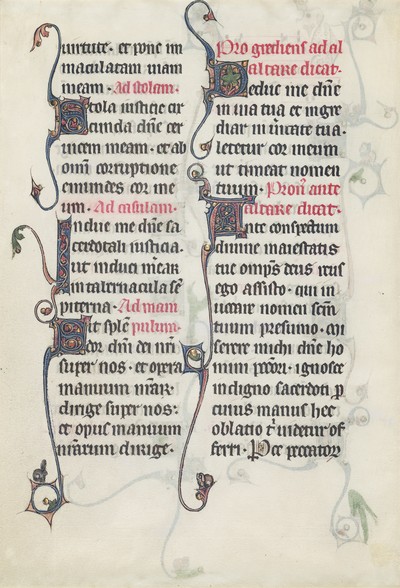 uirtute · et pone im
maculatam uiam
meam · Ad stolam ·
Stola iusticie cir
cunda dñe cer
uicem meam · et ab
omni corruptione
emundes cor me
um · Ad casulam ·
Indue me dñe sa
cerdotali iusticia ·
ut induci
in tabernacula
piterna · Ad mani
Sit splē pulum ·
dor dñi dei nrī
super nos · et opera
manuum
dirige super nos ·
et opus manuum
nrārum dirige ·
Pro grediens ad al
altare dicat ·
Deduc me dñe
in uia tua et ingre
diar in ueritate tua ·
letetur cor meum
ut timeat nomen
tuum · ante
altare dicat ·
Ante conspectum
diuine maiestatis
tue omps deus
ego assisto · qui in
uocare nomen scm̄
tuum presumo ·
serere michi dñe ho
mini · ignosce
indigno sacerdoti p
cuius manus hec
oblatio uidetur of
ferri · peccatori